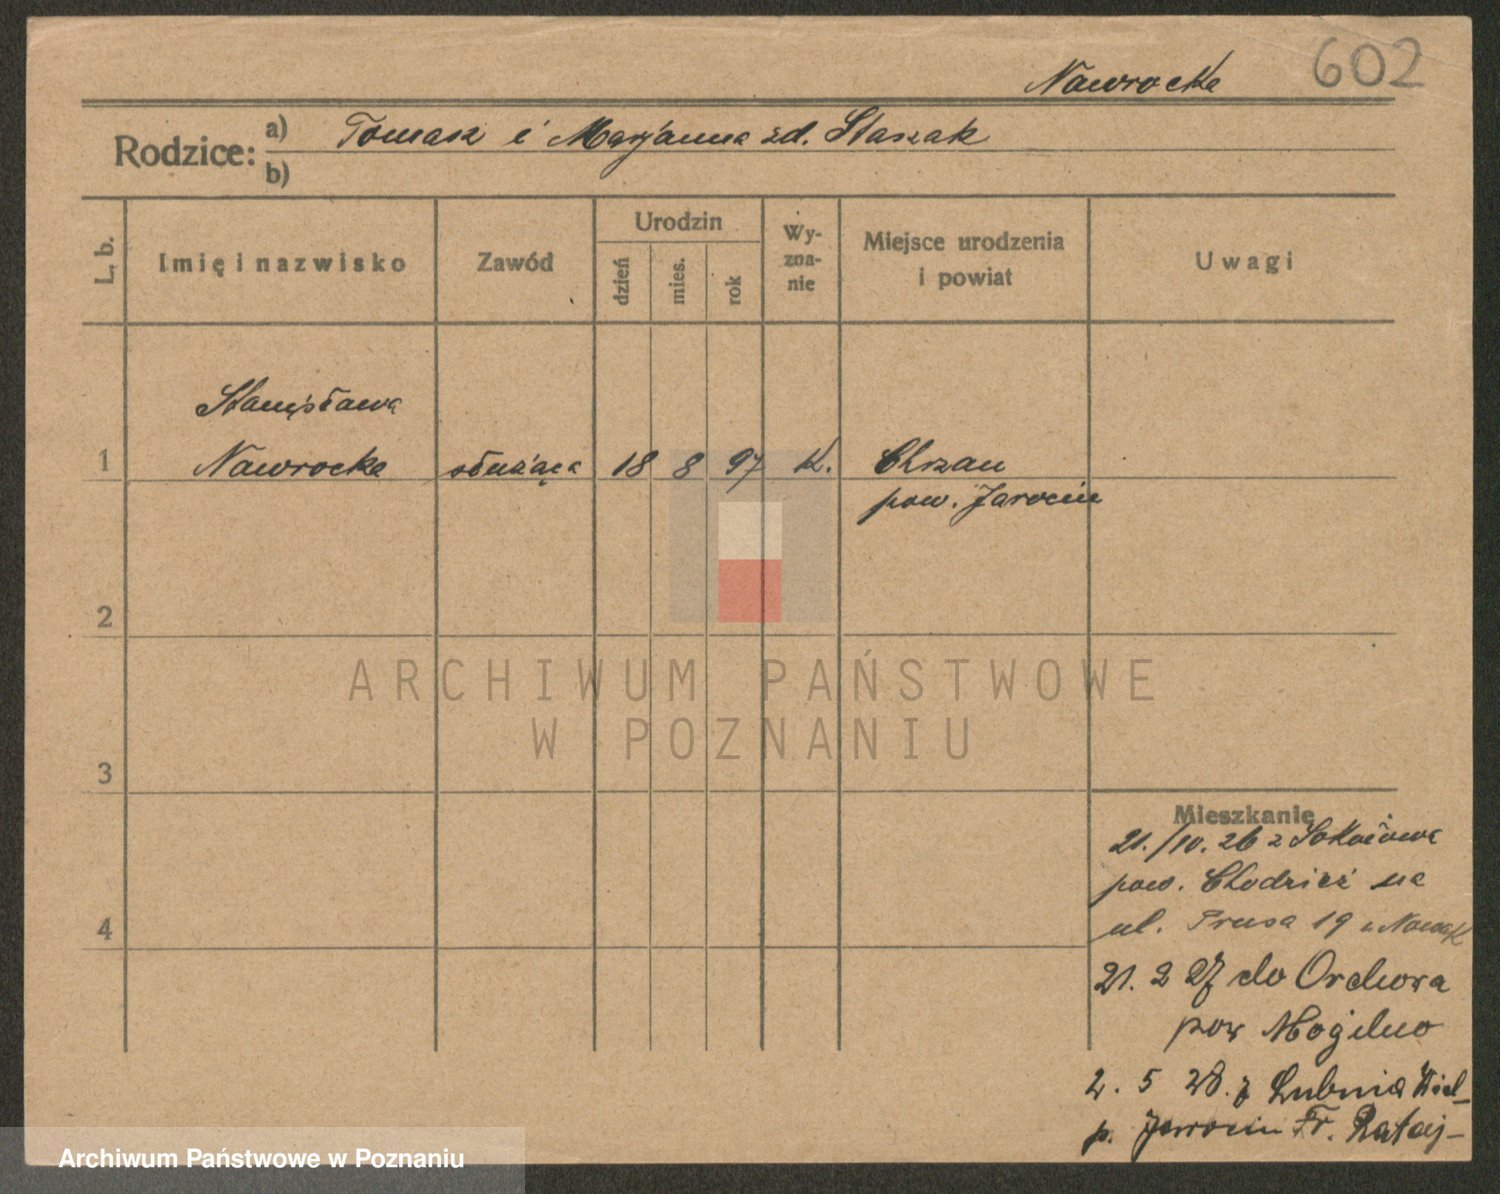 602
Nawrocka
Rodzice: a) Tomasz i Marjanna zd. Staszak
b)
L. b. Imię i nazwisko Zawód Urodzin dzień mies. rok Wyzna-nie Miejsce urodzenia i powiat Uwagi
Stanisława
1 Nawrocka służąca 18 8 97 K. Chrzan
pow. Jarocin
2
ARCHIWUM PAŃSTWOWE
W POZNANIU
3
Mieszkanie
21./10. 26 z Sokołowa
pow. Chodzież na
4 ul. Prusa 19 u Nowak
21. 2 27 do Orchowa
pow Mogilno
2. 5 28. z Lubnia Wiel-
p. Jarocin Fr. Rataj-
Archiwum Państwowe w Poznaniu